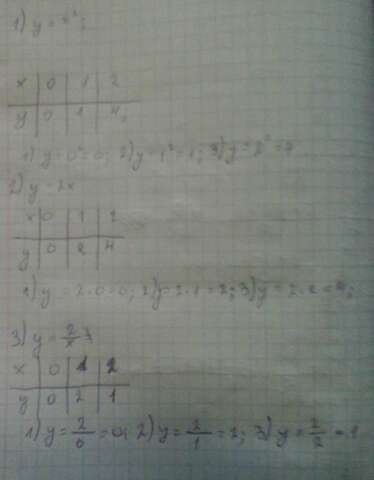 1) y = x²;
x | 0 | 1 | 2
y | 0 | 1 | 4;
1) y = 0² = 0; 2) y = 1² = 1; 3) y = 2² = 4
2) y = 2x
x | 0 | 1 | 2
y | 0 | 2 | 4
1) y = 2·0 = 0; 2) y = 2·1 = 2; 3) y = 2·2 = 4;
3) y = 2/x
x | 0 | 1 | 2
y | 0 | 2 | 1
1) y = 2/0 = 0; 2) y = 2/1 = 2; 3) y = 2/2 = 1